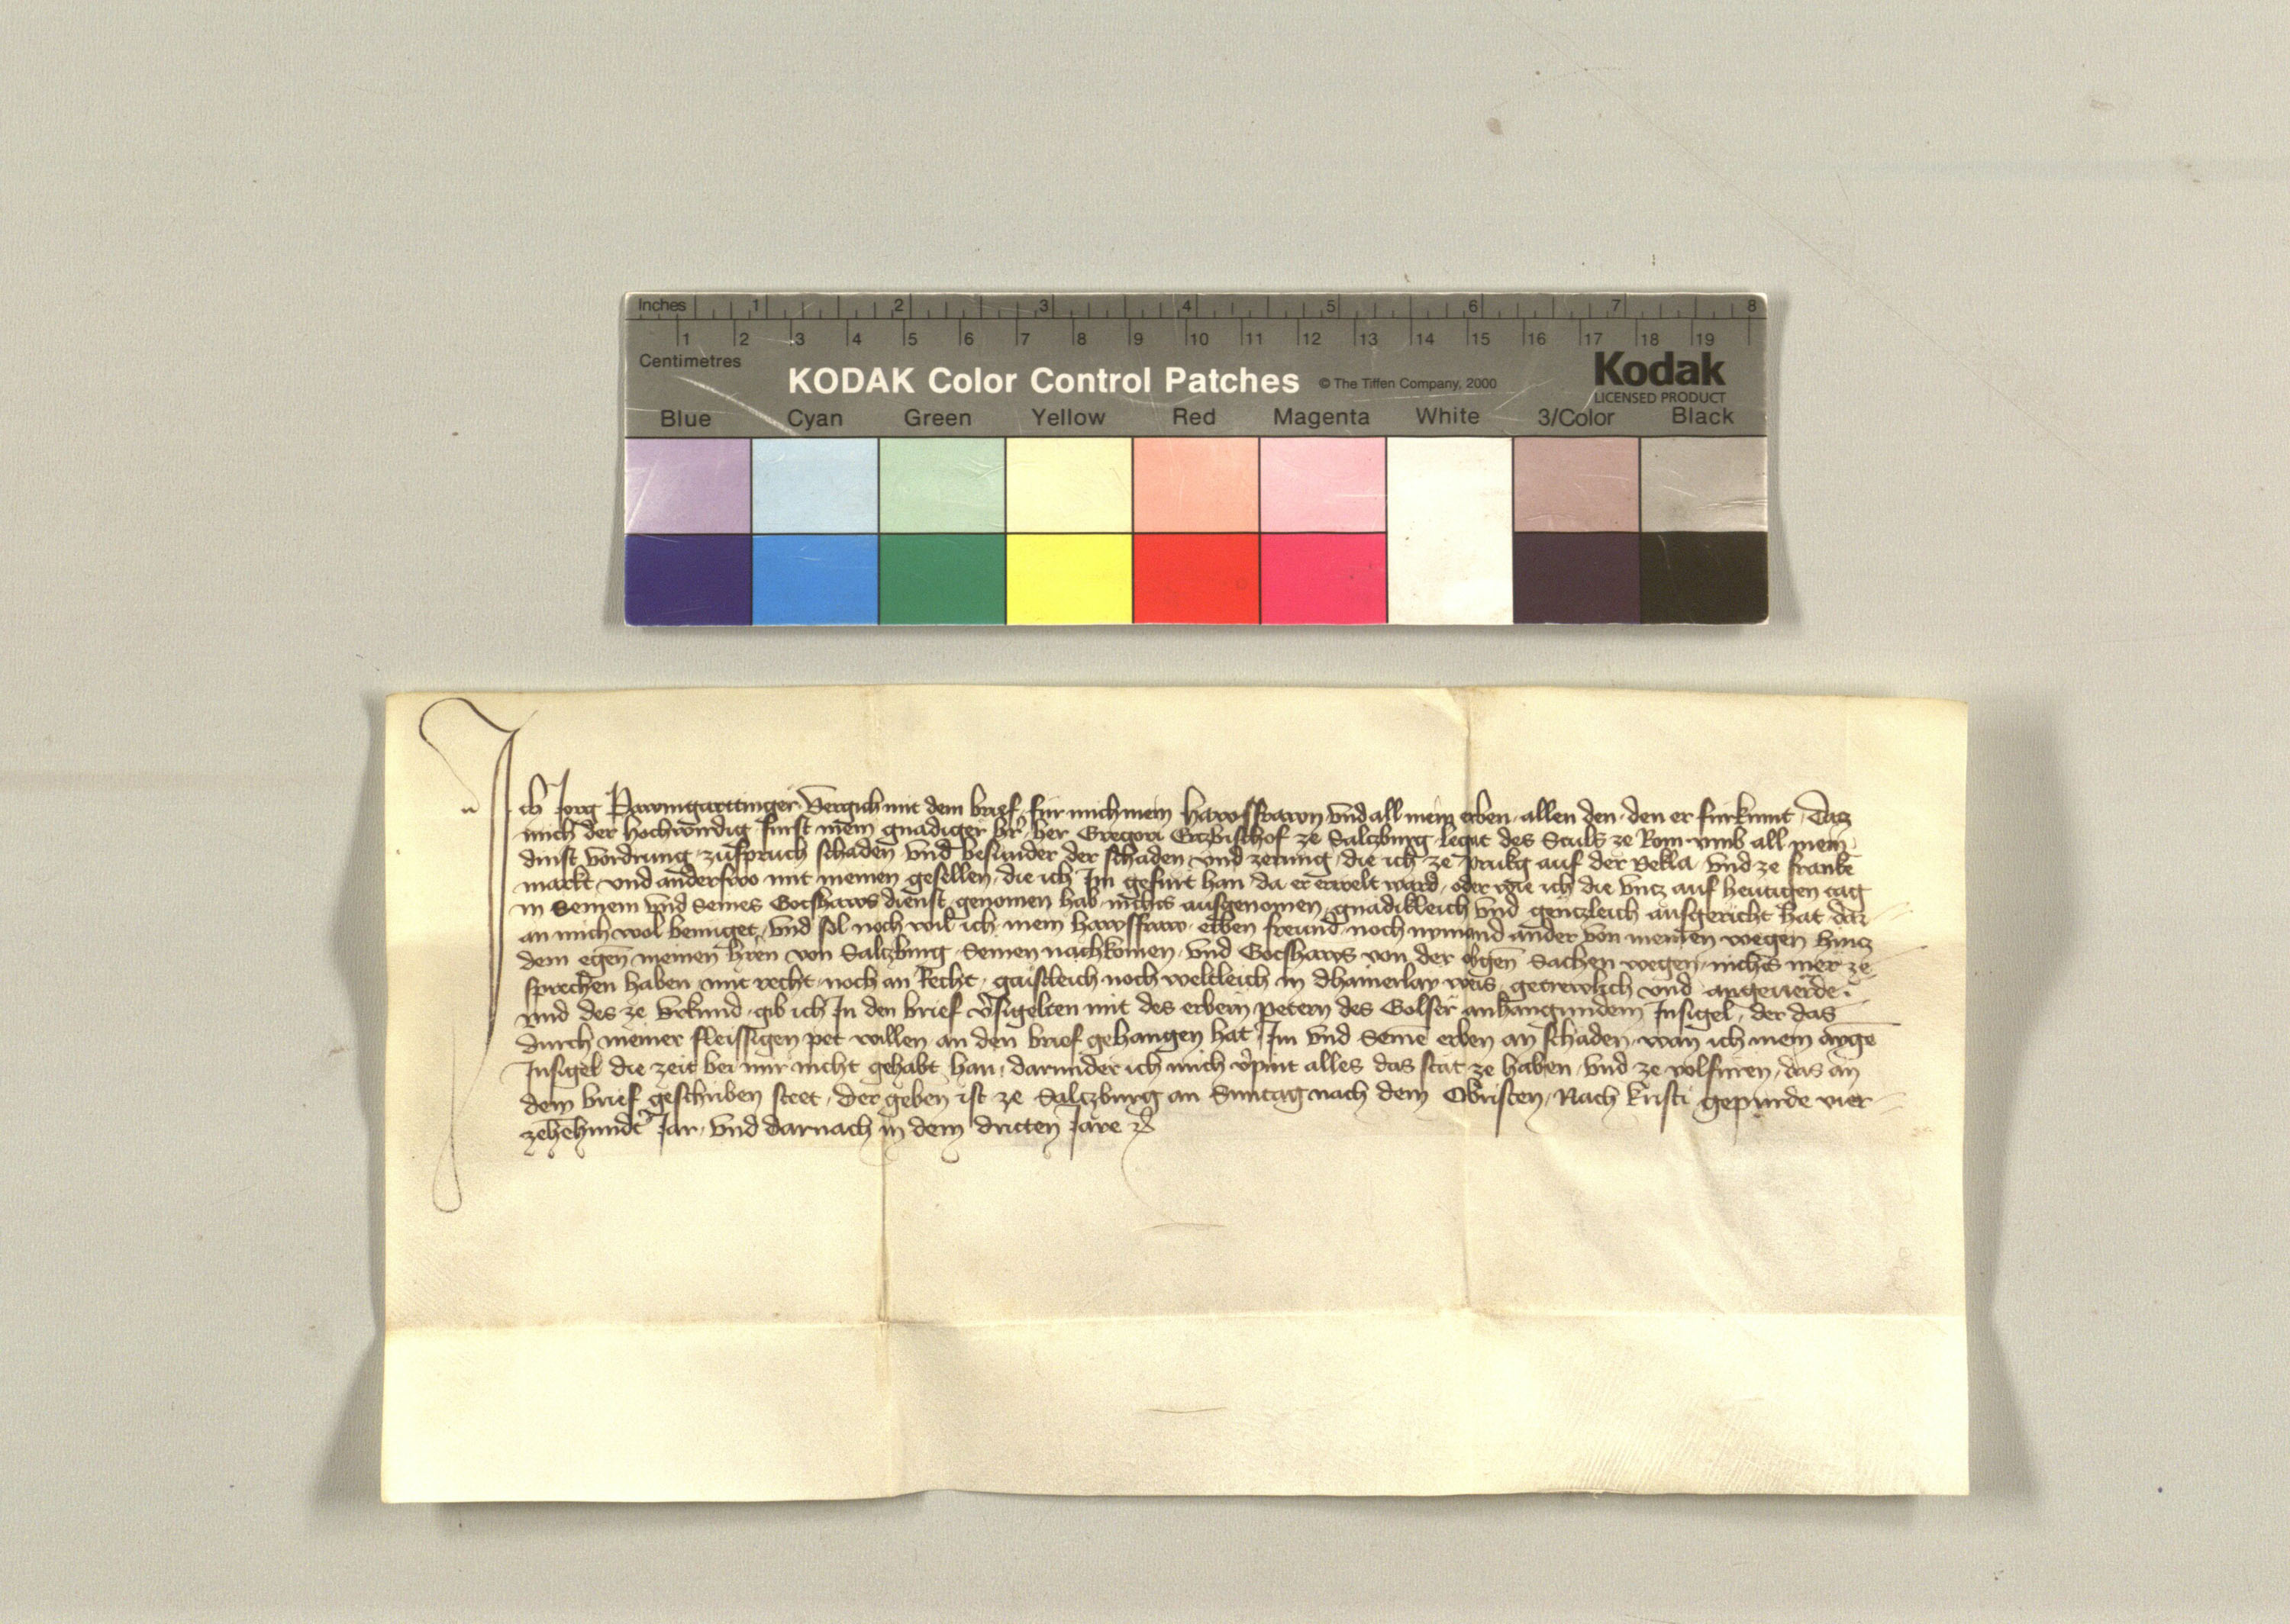 Inches 1 2 3 4 5 6 7 8
1 2 3 4 5 6 7 8 9 10 11 12 13 14 15 16 17 18 19
Centimetres
KODAK Color Control Patches © The Tiffen Company, 2000 Kodak
LICENSED PRODUCT
Blue Cyan Green Yellow Red Magenta White 3/Color Black
Ich Jorg Pawmgarttinger Vergich mit dem brief fur mich mein hawsfrawn vnd all mein erben allen den den er furkumt Daz
mich der hochwirdig furst mein gnadiger hr̄ her Gregori Erzbischof ze Salczburg legat des Stuls ze Rom vmb all mein
dinst vordrung zuspruch schaden vnd besunder der schaden vnd zerung die ich ze prukg auf der Vekla vnd ze franke
markt vnd anderswo mit meinen gesellen die ich Im gefurt han da er erwelt ward oder wie ich die vncz auf heutigen tag
in Seinem vnd Seines Gotshaws dienst genomen hab nichts ausgenomen gnadikleich vnd genczleich ausgericht hat dar
an mich wol benuget vnd sol noch wil ich mein hawsfraw erben freund noch nymand ander von meinen wegen hincz
dem egen̄ meinen hr̄en von Salczburg Seinen nachkomen vnd Gotshaws von der obgen̄ Sachen wegen nichts mer ze
sprechen haben mit recht noch an Recht gaistleich noch weltleich in dhainerlay weis getrewlich vnd angeuerde
vnd des ze vrkund gib ich In den brief v̄sigelten mit des erbern petern des Golser anhangundem Insigel der das
durch meiner fleissigen pet willen an den brief gehangen hat Im vnd Seinē erben an schaden wan ich mein aygē
Insigel die zeit bei mir nicht gehabt han darunder ich mich v̄pint alles das stat ze haben vnd ze volfuren das an
dem brief geschriben steet der geben ist ze Salczburg an Suntag nach dem Obristen Nach kristi gepurde vier
zehēhundt̄ Jar vnd darnach in dem dritten Jare